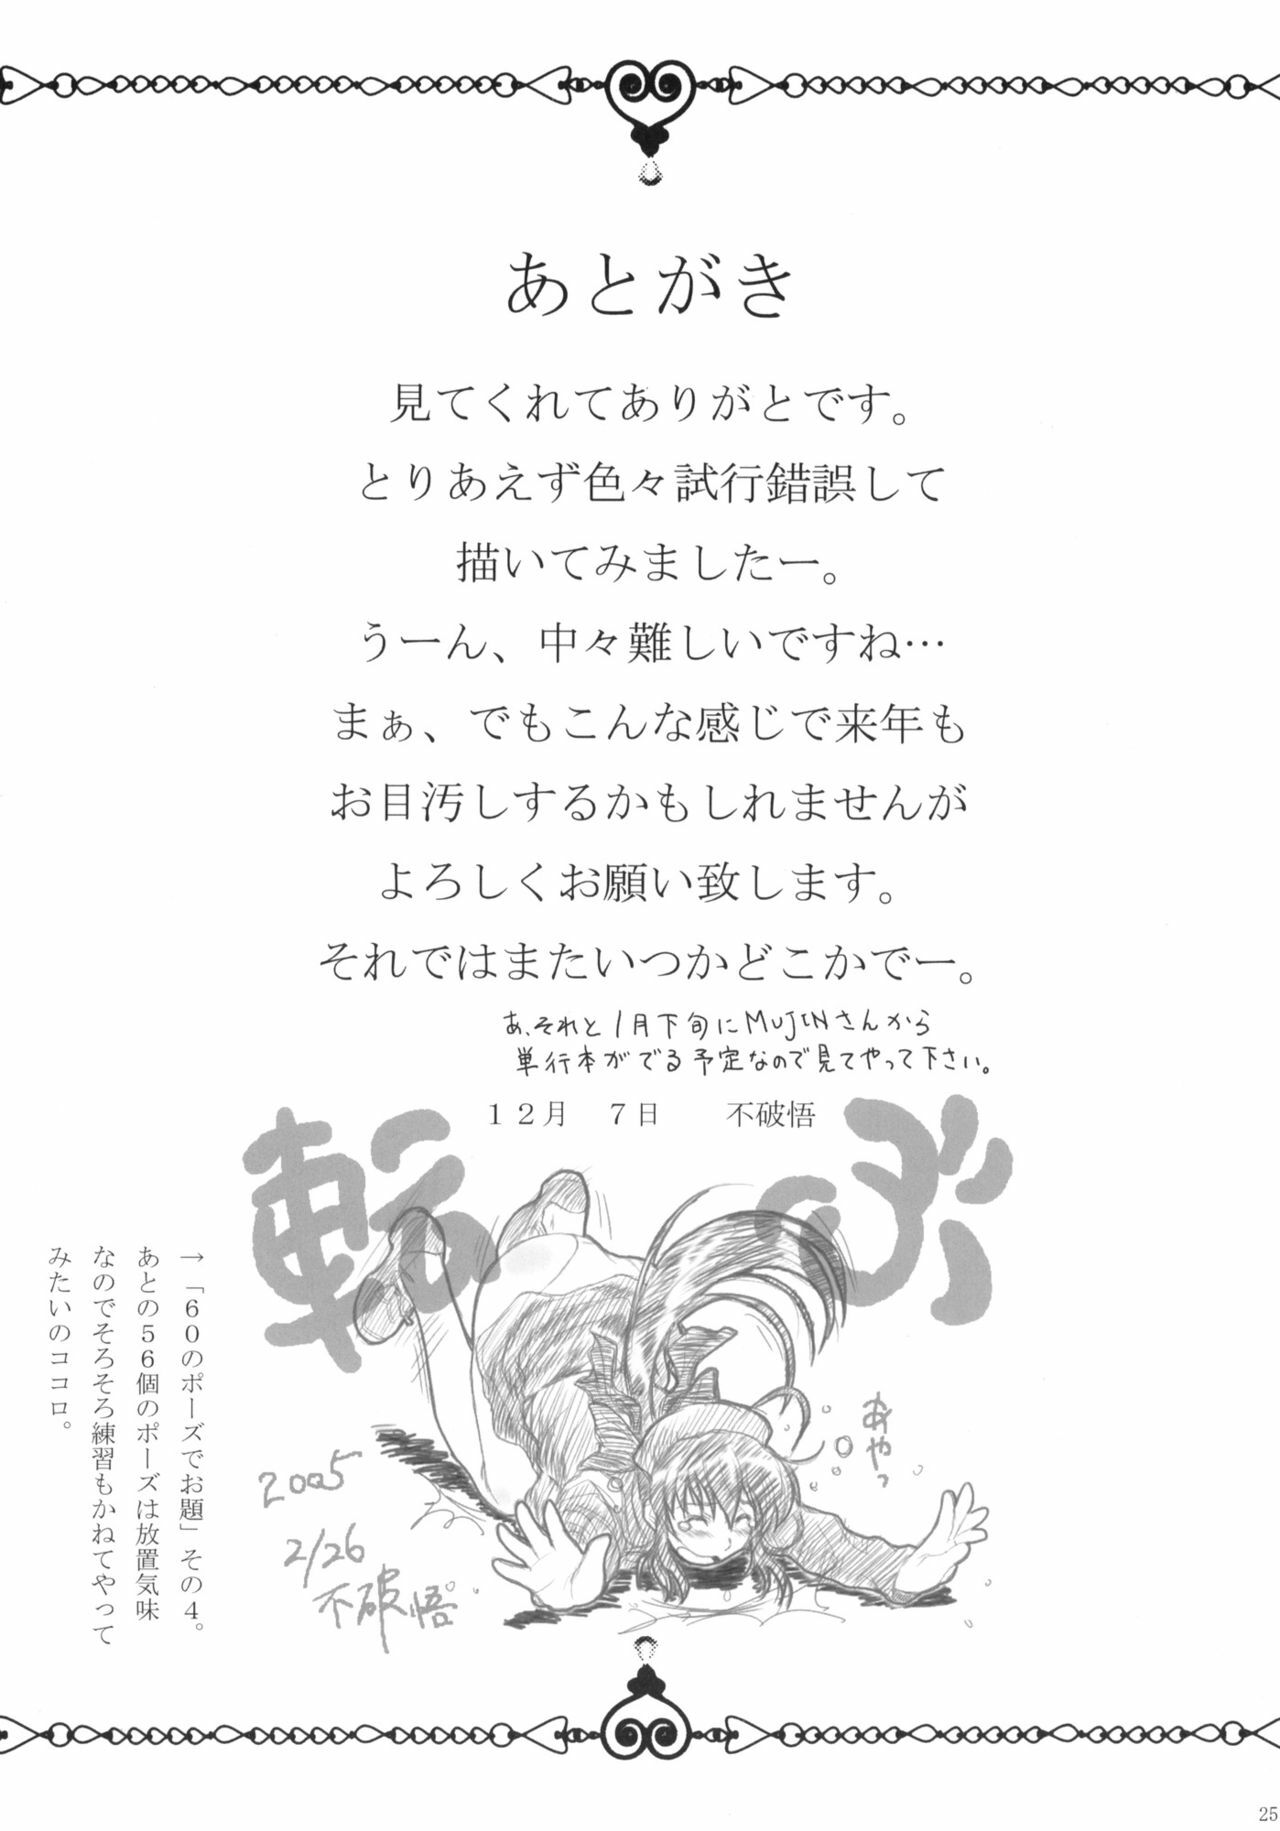 あとがき
見てくれてありがとです。
とりあえず色々試行錯誤して
描いてみましたー。
うーん、中々難しいですね…
まぁ、でもこんな感じで来年も
お目汚しするかもしれませんが
よろしくお願い致します。
それではまたいつかどこかでー。
あ、それと1月下旬にMUJINさんから
単行本がでる予定なので見てやって下さい。
１２月　７日　　不破悟
転ぶの
あやっ
2005
2/26
不破悟
→「６０のポーズでお題」その４。
あとの５６個のポーズは放置気味
なのでそろそろ練習もかねてやって
みたいのココロ。
25